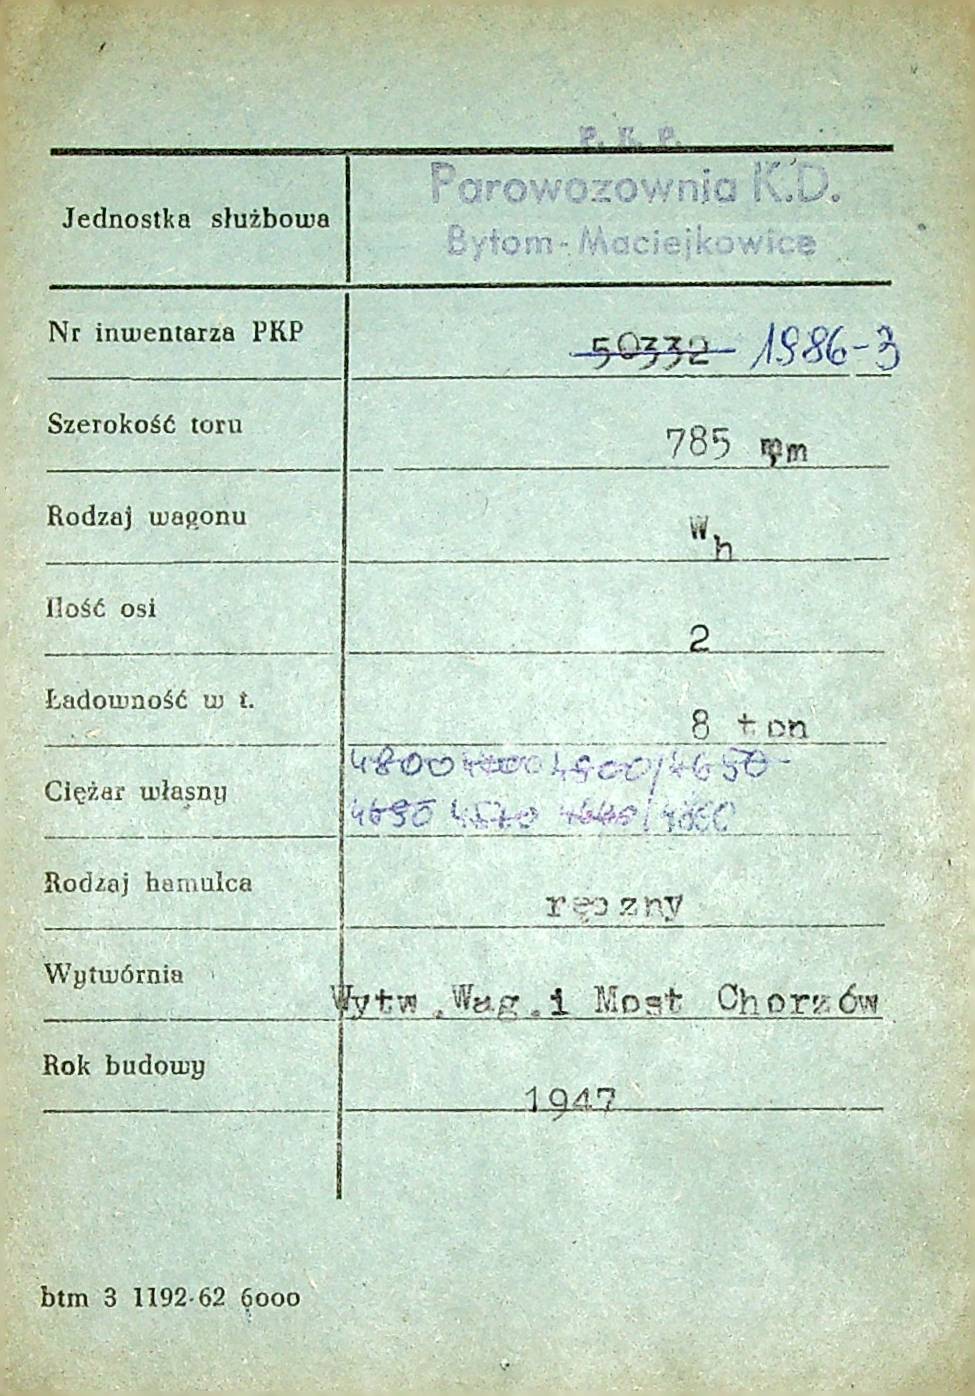 P. K. P.
Parowozownia K.D.
Jednostka służbowa
Bytom-Maciejkowice
Nr inwentarza PKP 50332 1986-3
Szerokość toru 785 mm
Rodzaj wagonu Wh
Ilość osi 2
Ładowność w t. 8 ton
4800 4900/4650
Ciężar własny
4690 4570
Rodzaj hamulca ręczny
Wytwórnia Wytw.Wag.i Most Chorzów
Rok budowy 1947
btm 3 1192-62 6000